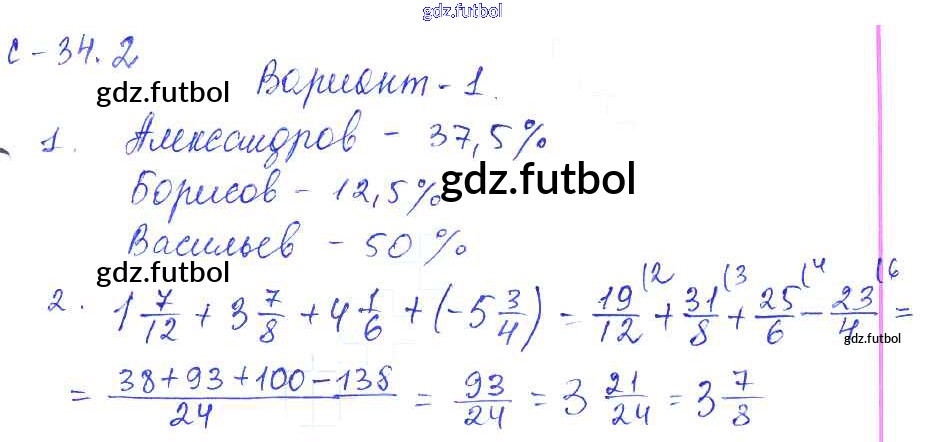 gdz.futbol
С-34.2
gdz.futbol Вариант-1.
1. Александров - 37,5%
Борисов - 12,5% gdz.futbol
Васильев - 50%
gdz.futbol
2. 1 7/12 + 3 7/8 + 4 1/6 + (-5 3/4) = 19/12 (2 + 31/8 (3 + 25/6 (4 - 23/4 (6 =
gdz.futbol
= (38+93+100-138)/24 = 93/24 = 3 21/24 = 3 7/8